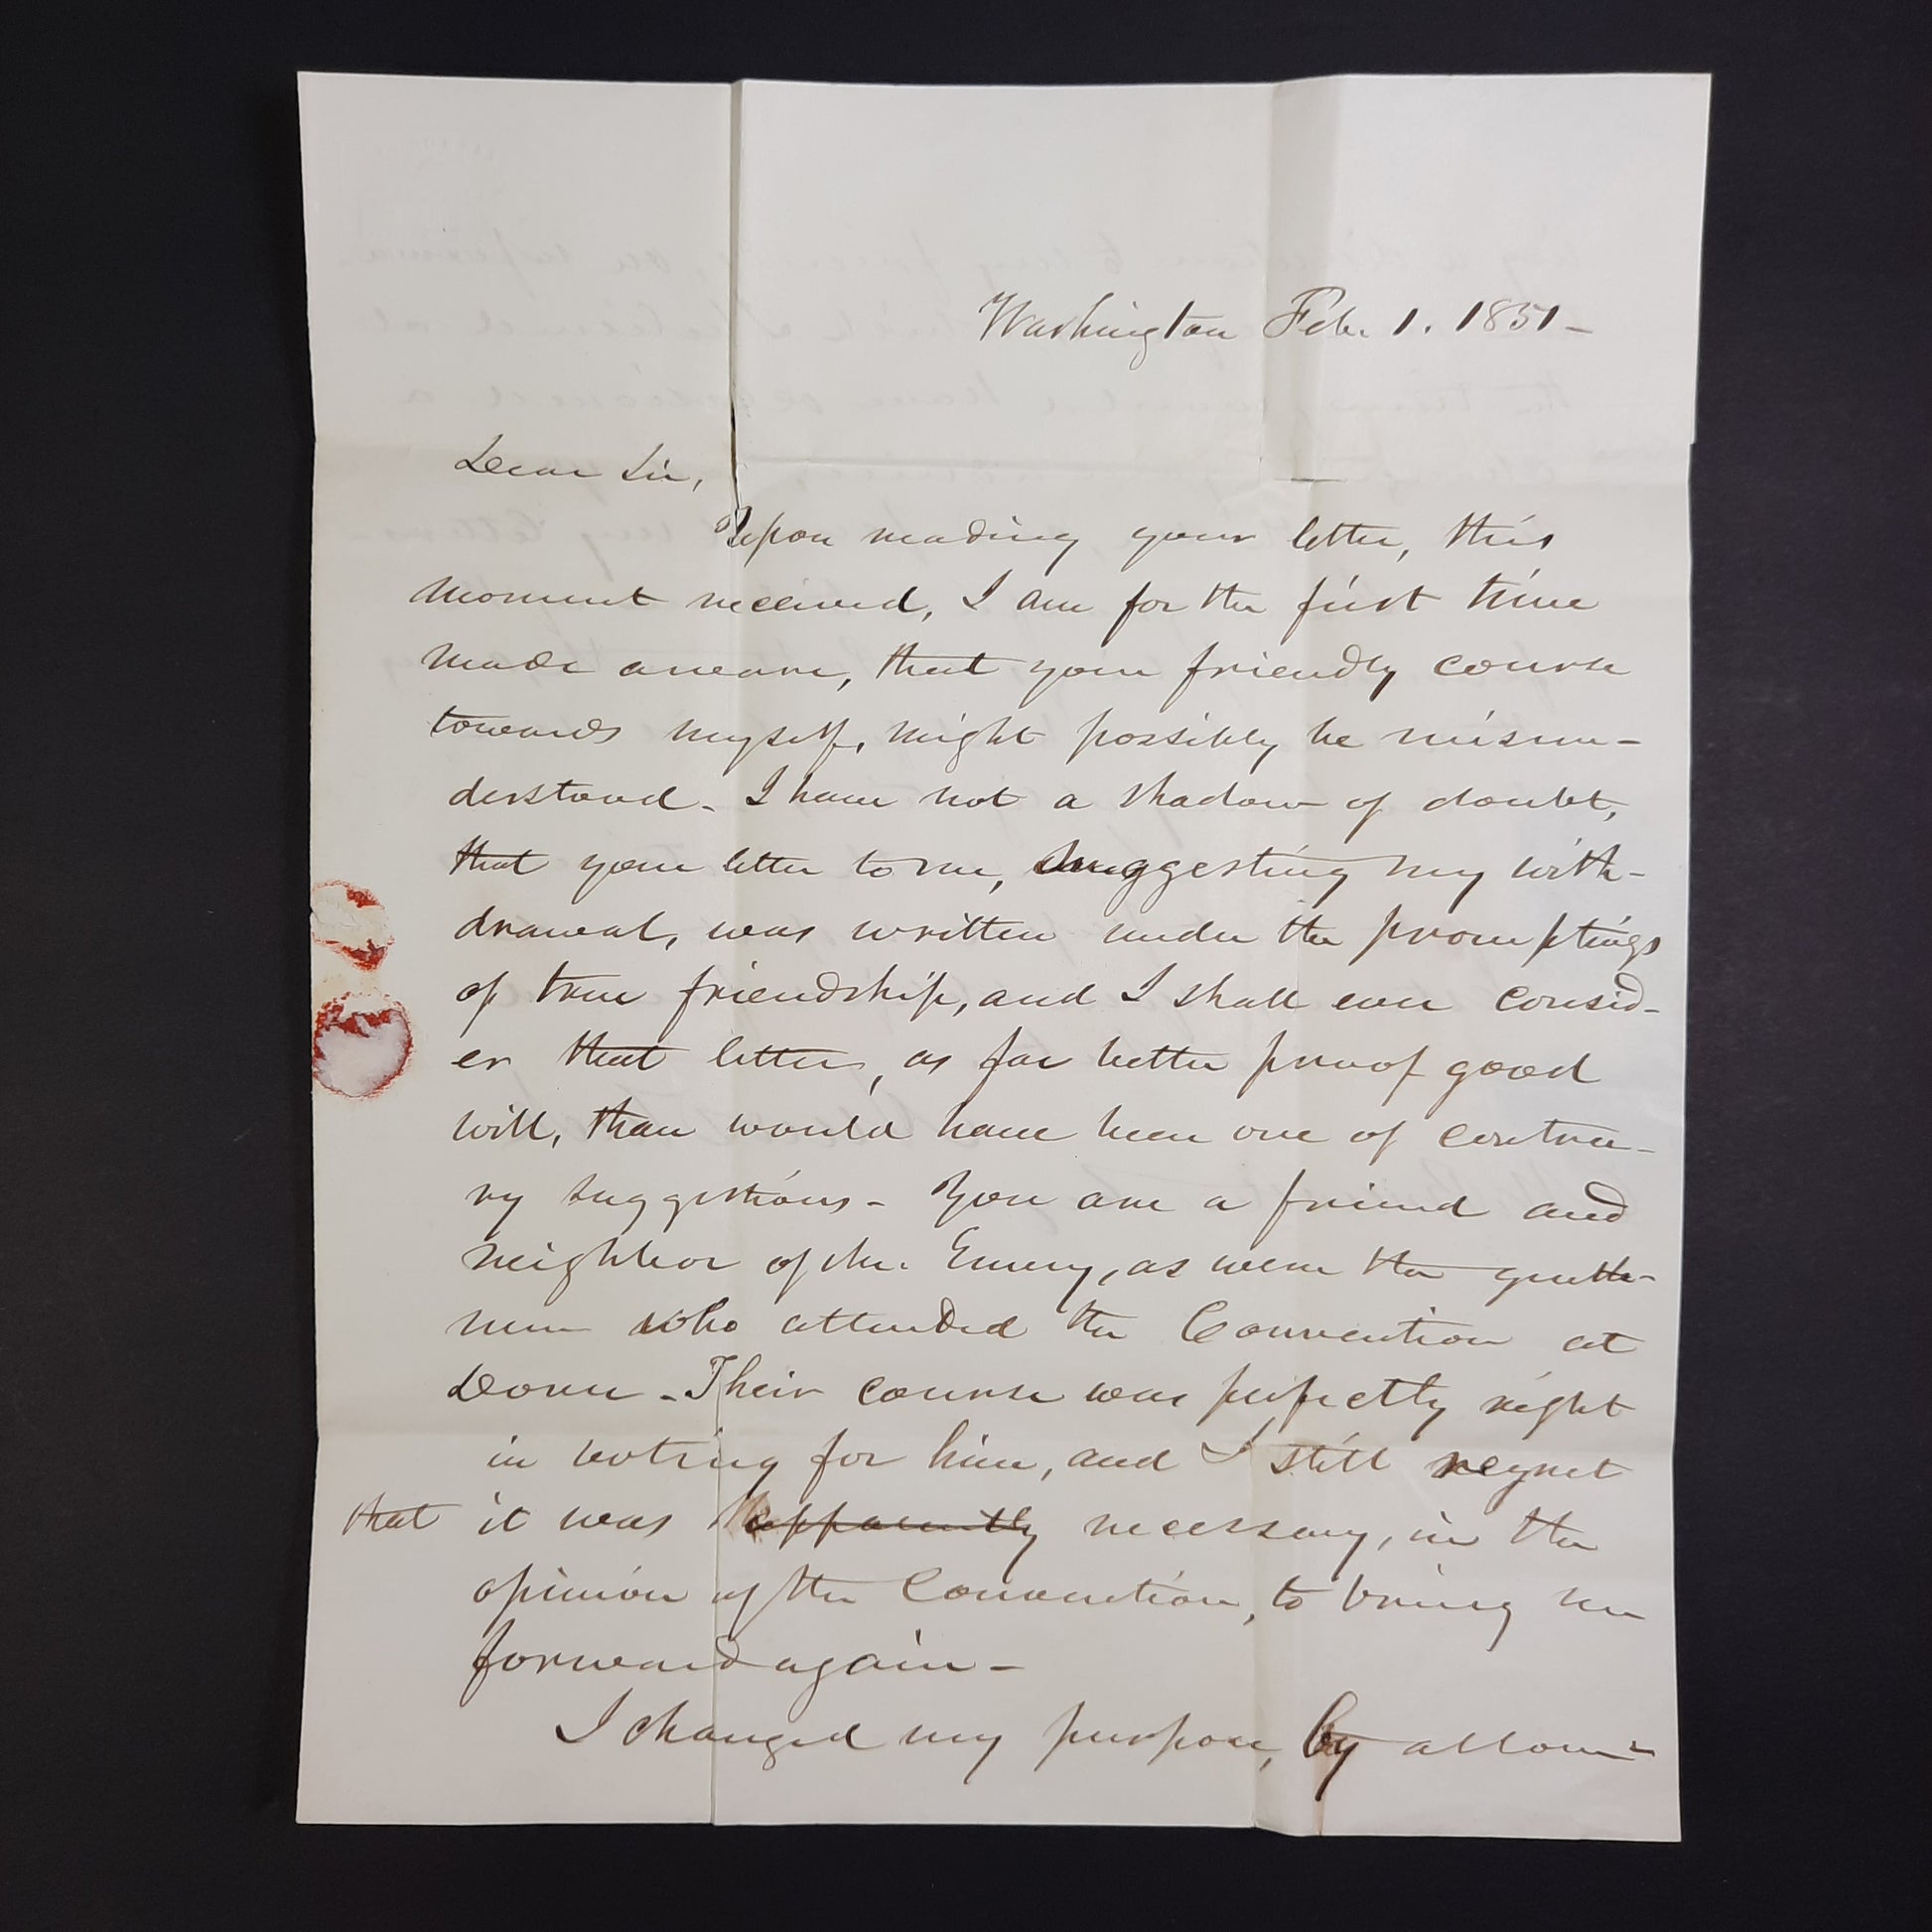 Washington Feb. 1. 1851-
Dear Sir,
Upon reading your letter, this
moment received, I am for the first time
made aware, that your friendly course
towards myself, might possibly be misun-
derstood- I have not a shadow of doubt,
that your letter to me, suggesting my with-
drawal, was written under the promptings
of true friendship, and I shall ever consid-
er that letter, as far better proof good
will, than would have been one of contra-
ry suggestions- You are a friend and
neighbor of Mr. Emery, as were the gentle-
men who attended the Convention at
Dover- Their course was perfectly right
in voting for him, and I still regret
that it was apparently necessary, in the
opinion of the Convention, to bring me
forward again-
I changed my purpose, by allow-